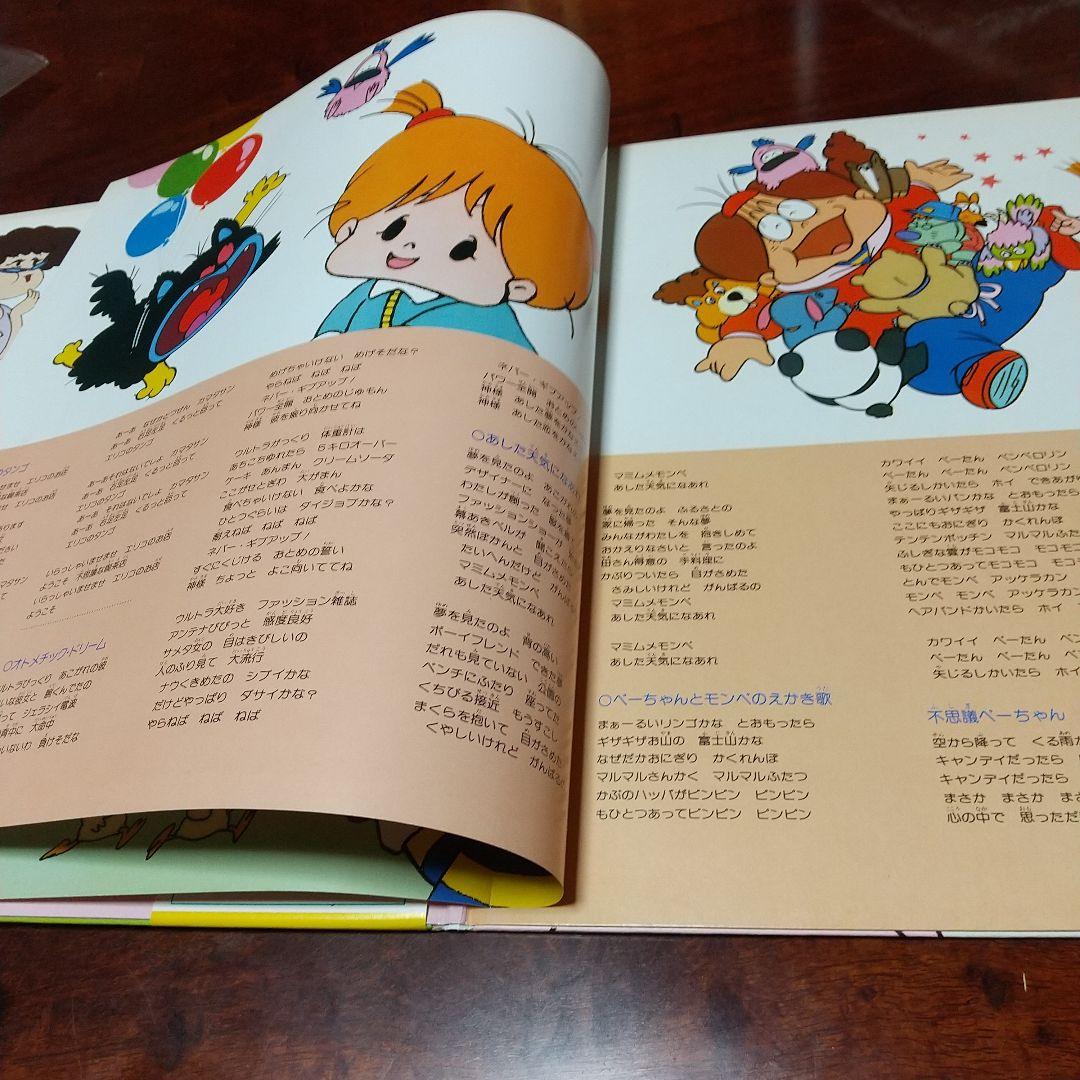 あーあ なぜかとつぜん カマタサン
あーあ 右足左足 くるっと回って
エリコのタンゴ
のタンゴ
ませませ エリコのお店
な喫茶店
ませませ エリコのお店
あーあそれはないでしょ カマタサン
あーあ 右足左足 くるっと回って
あーあ それはないでしょ カマタサン
あーあ 右足左足 くるっと回って
エリコのタンゴ
いらっしゃいませませ エリコのお店
ようこそ 不思議な喫茶店
いらっしゃいませませ エリコのお店
ようこそ
○オトメチック・ドリーム
ウルトラびっくり あこがれの彼
ジェラシイ電波
背中に 大命中
負けそだな
めげちゃいけない めげそだな?
やらねば ねば ねば
ネバー・ギブアップ!
パワー全開 おとめのじゅもん
神様 彼を振り向かせてね
ウルトラがっくり 体重計は
あちこちゆれたら 5キロオーバー
ケーキ あんまん クリームソーダ
ここがせとぎわ 大がまん
食べちゃいけない 食べよかな
ひとつぐらいは ダイジョブかな?
耐えねば ねば ねば
ネバー・ギブアップ!
すぐにくじける おとめの誓い
神様 ちょっと よこ向いててね
ウルトラ大好き ファッション雑誌
アンテナぴぴっと 感度良好
サメタ女の 目はきびしいの
人のふり見て 大流行
ナウくきめたの シブイかな
だけどやっぱり ダサイかな?
やらねば ねば ねば
ネバー・ギブアップ
パワー全開 おとめの
神様 あした
神様 あした
○あした天気にな
夢を見たのよ あこがれ
デザイナーに なった夢
わたしが創った 服を
ファッションショーが
幕あきベルが 聞こ
突然ぽかんと 目がさめた
たいへんだけど がんばる
マミムメモンペ
あした天気になあれ
夢を見たのよ 背の高い
ボーイフレンド できた夢
だれも見ていない 公園の
ベンチにふたり 座ってた
くちびる接近 もうすこし
まくらを抱いて 目がさめた
くやしいけれど がんばる
マミムメモンペ
あした天気になあれ
夢を見たのよ ふるさとの
家に帰った そんな夢
みんながわたしを 抱きしめて
おかえりなさいと 言ったのよ
母さん得意の 手料理に
かぶりついたら 目がさめた
さみしいけれど がんばるの
マミムメモンペ
あした天気になあれ
マミムメモンペ
あした天気になあれ
○ペーちゃんとモンペのえかき歌
まぁーるいリンゴかな とおもったら
ギザギザお山の 富士山かな
なぜだかおにぎり かくれんぼ
マルマルさんかく マルマルふたつ
かぶのハッパがピンピン ピンピン
もひとつあってピンピン ピンピン
カワイイ ペーたん ペンペロリン
ペーたん ペーたん ペンペロリン
矢じるしかいたら ホイ できあが
まぁーるいパンかな とおもったら
やっぱりギザギザ 富士山かな
ここにもおにぎり かくれんぼ
テンテンポッチン マルマルふた
ふしぎな雲がモコモコ モコモコ
もひとつあってモコモコ モコモ
とんでモンペ アッケラカン
モンペ モンペ アッケラカン
ヘアバンドかいたら ホイ
カワイイ ペーたん ペ
ペーたん ペーたん ペ
矢じるしかいたら ホイ
不思議ペーちゃん
空から降って くる雨が
キャンデイだったら
キャンデイだったら
まさか まさか まさ
心の中で 思っただ